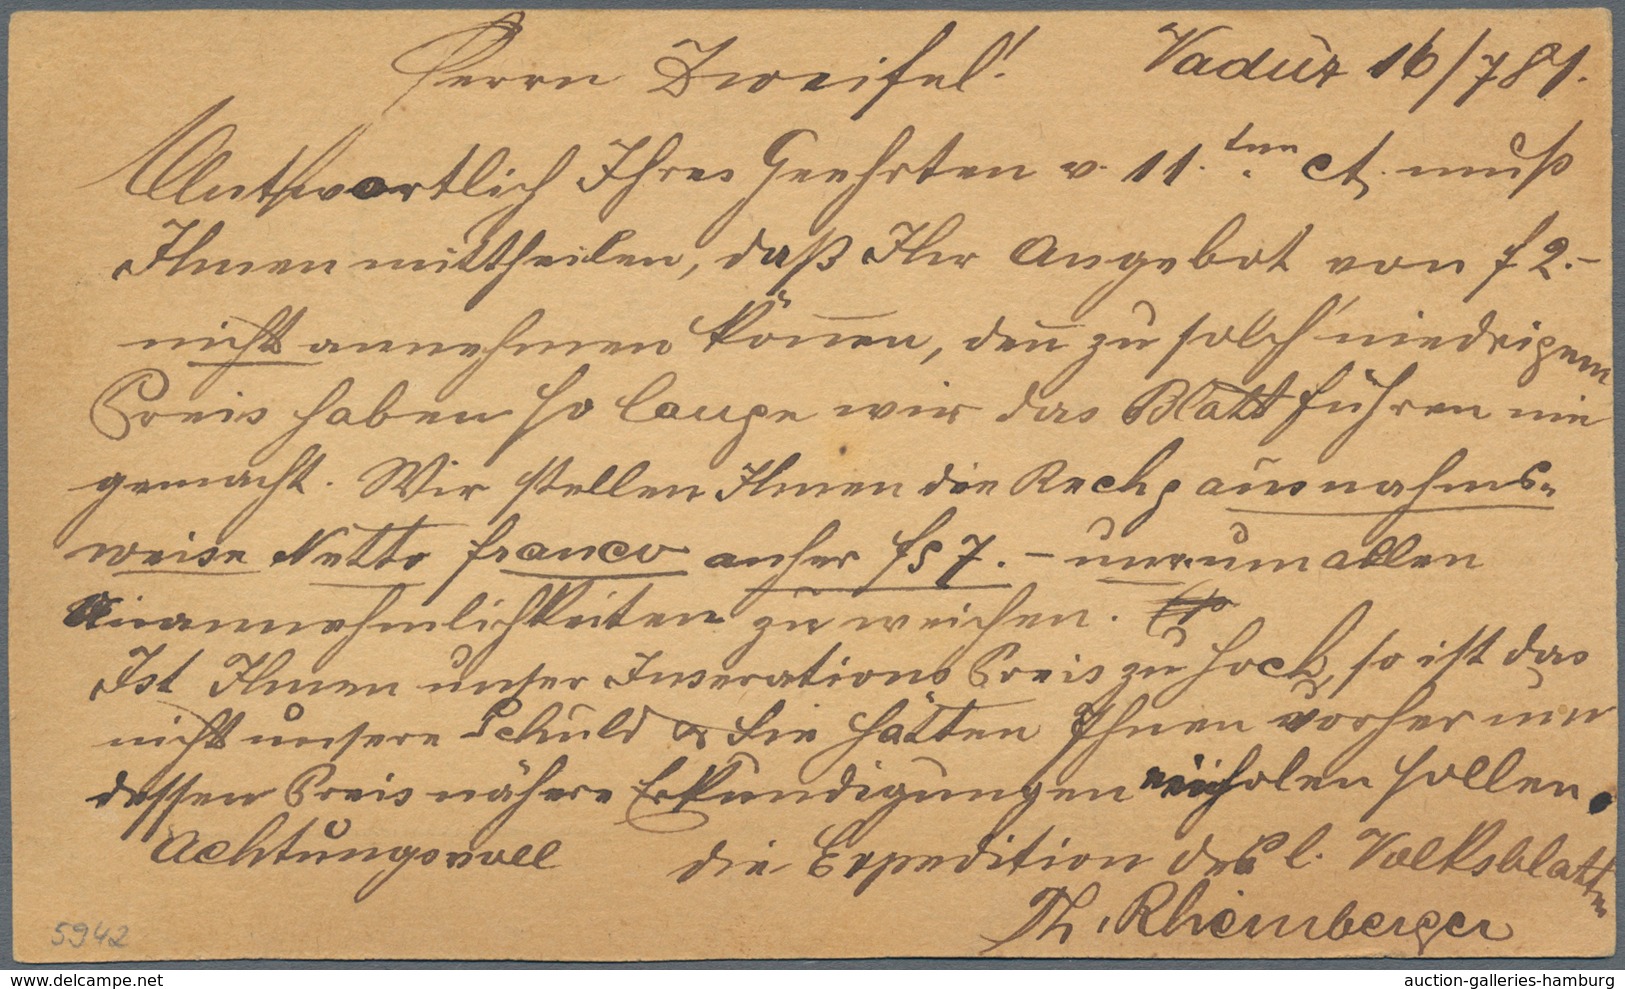 Herrn Zweifel! Vaduz 16/7 81.
Antwortlich Ihres Geehrten v. 11.ten ct. muß
Ihnen mittheilen, daß Ihr Angebot von f 2.-
nicht annehmen können, denn zu solch' niedrigem
Preis haben so lange wir das Blatt führen nie
gemacht. Wir stellen Ihnen die Rechg ausnahms-
weise Netto franco anher f 7. - nur um allen
Unannehmlichkeiten zu weichen.
Ist Ihnen unser Inserations Preis zu hoch, so ist das
nicht unsere Schuld & Sie hätten Ihnen vorher um
dessen Preis nähere Erkundigungen einholen sollen.
Achtungsvoll die Expedition des l. Volksblattes
Th. Rheinberger
5942
auction-galleries-hamburg
www.delcampe.net